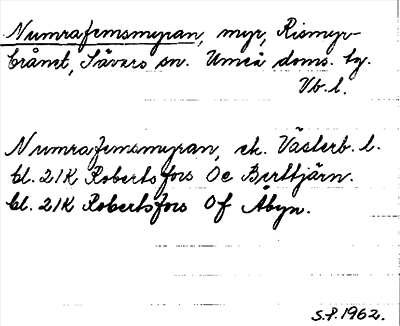 Numrafemsmyran, myr, Rismyr-
trånet, Sävars sn. Umeå doms. tg.
Vb. l.
Numrafemsmyran, ek. Västerb. l.
bl. 21K Robertsfors 0e Berttjärn.
bl. 21K Robertsfors 0f Åbyn.
S.P. 1962.